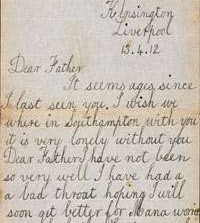 Kensington
Liverpool
13.4.12
Dear Father
It seems ages since
I last seen you. I wish we
where in Southampton with you
it is very lonely without you
Dear Father I have not been
so very well I have had a
a bad throat hoping I will
soon get better for Mana